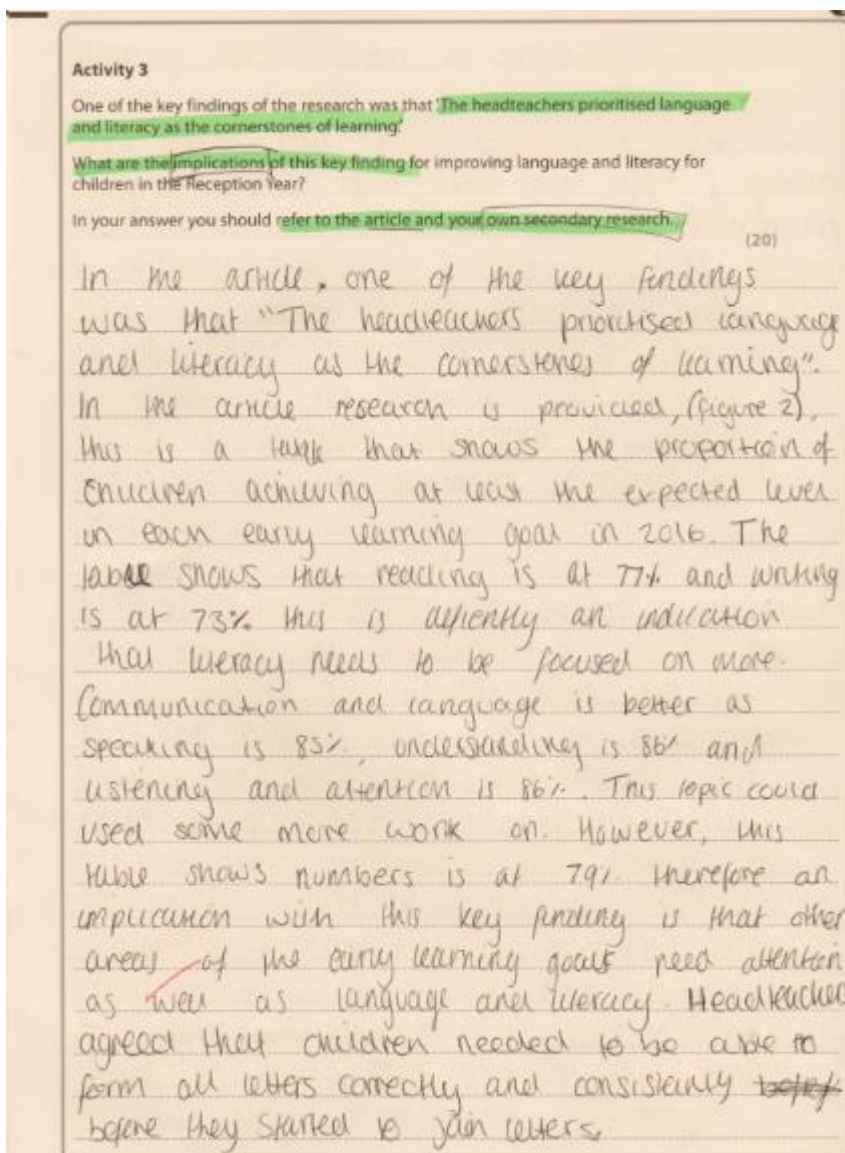 Activity 3
One of the key findings of the research was that 'The headteachers prioritised language
and literacy as the cornerstones of learning.'
What are the implications of this key finding for improving language and literacy for
children in the Reception Year?
In your answer you should refer to the article and your own secondary research.
(20)
In the article, one of the key findings
was that "The headteachers prioritised language
and literacy as the cornerstones of learning".
In the article research is provided, (figure 2),
this is a table that shows the proportion of
Children achieving at least the expected level
in each early learning goal in 2016. The
table shows that reading is at 77% and writing
is at 73% this is defiently an indication
that literacy needs to be focused on more.
Communication and language is better as
speaking is 85%, understanding is 86% and
listening and attention is 86%. This topic could
used some more work on. However, this
table shows numbers is at 79% therefore an
implication with this key finding is that other
areas of the early learning goals need attention
as well as language and literacy. Headteacher
agreed they children needed to be able to
form all letters correctly and consistently
before they started to join letters.